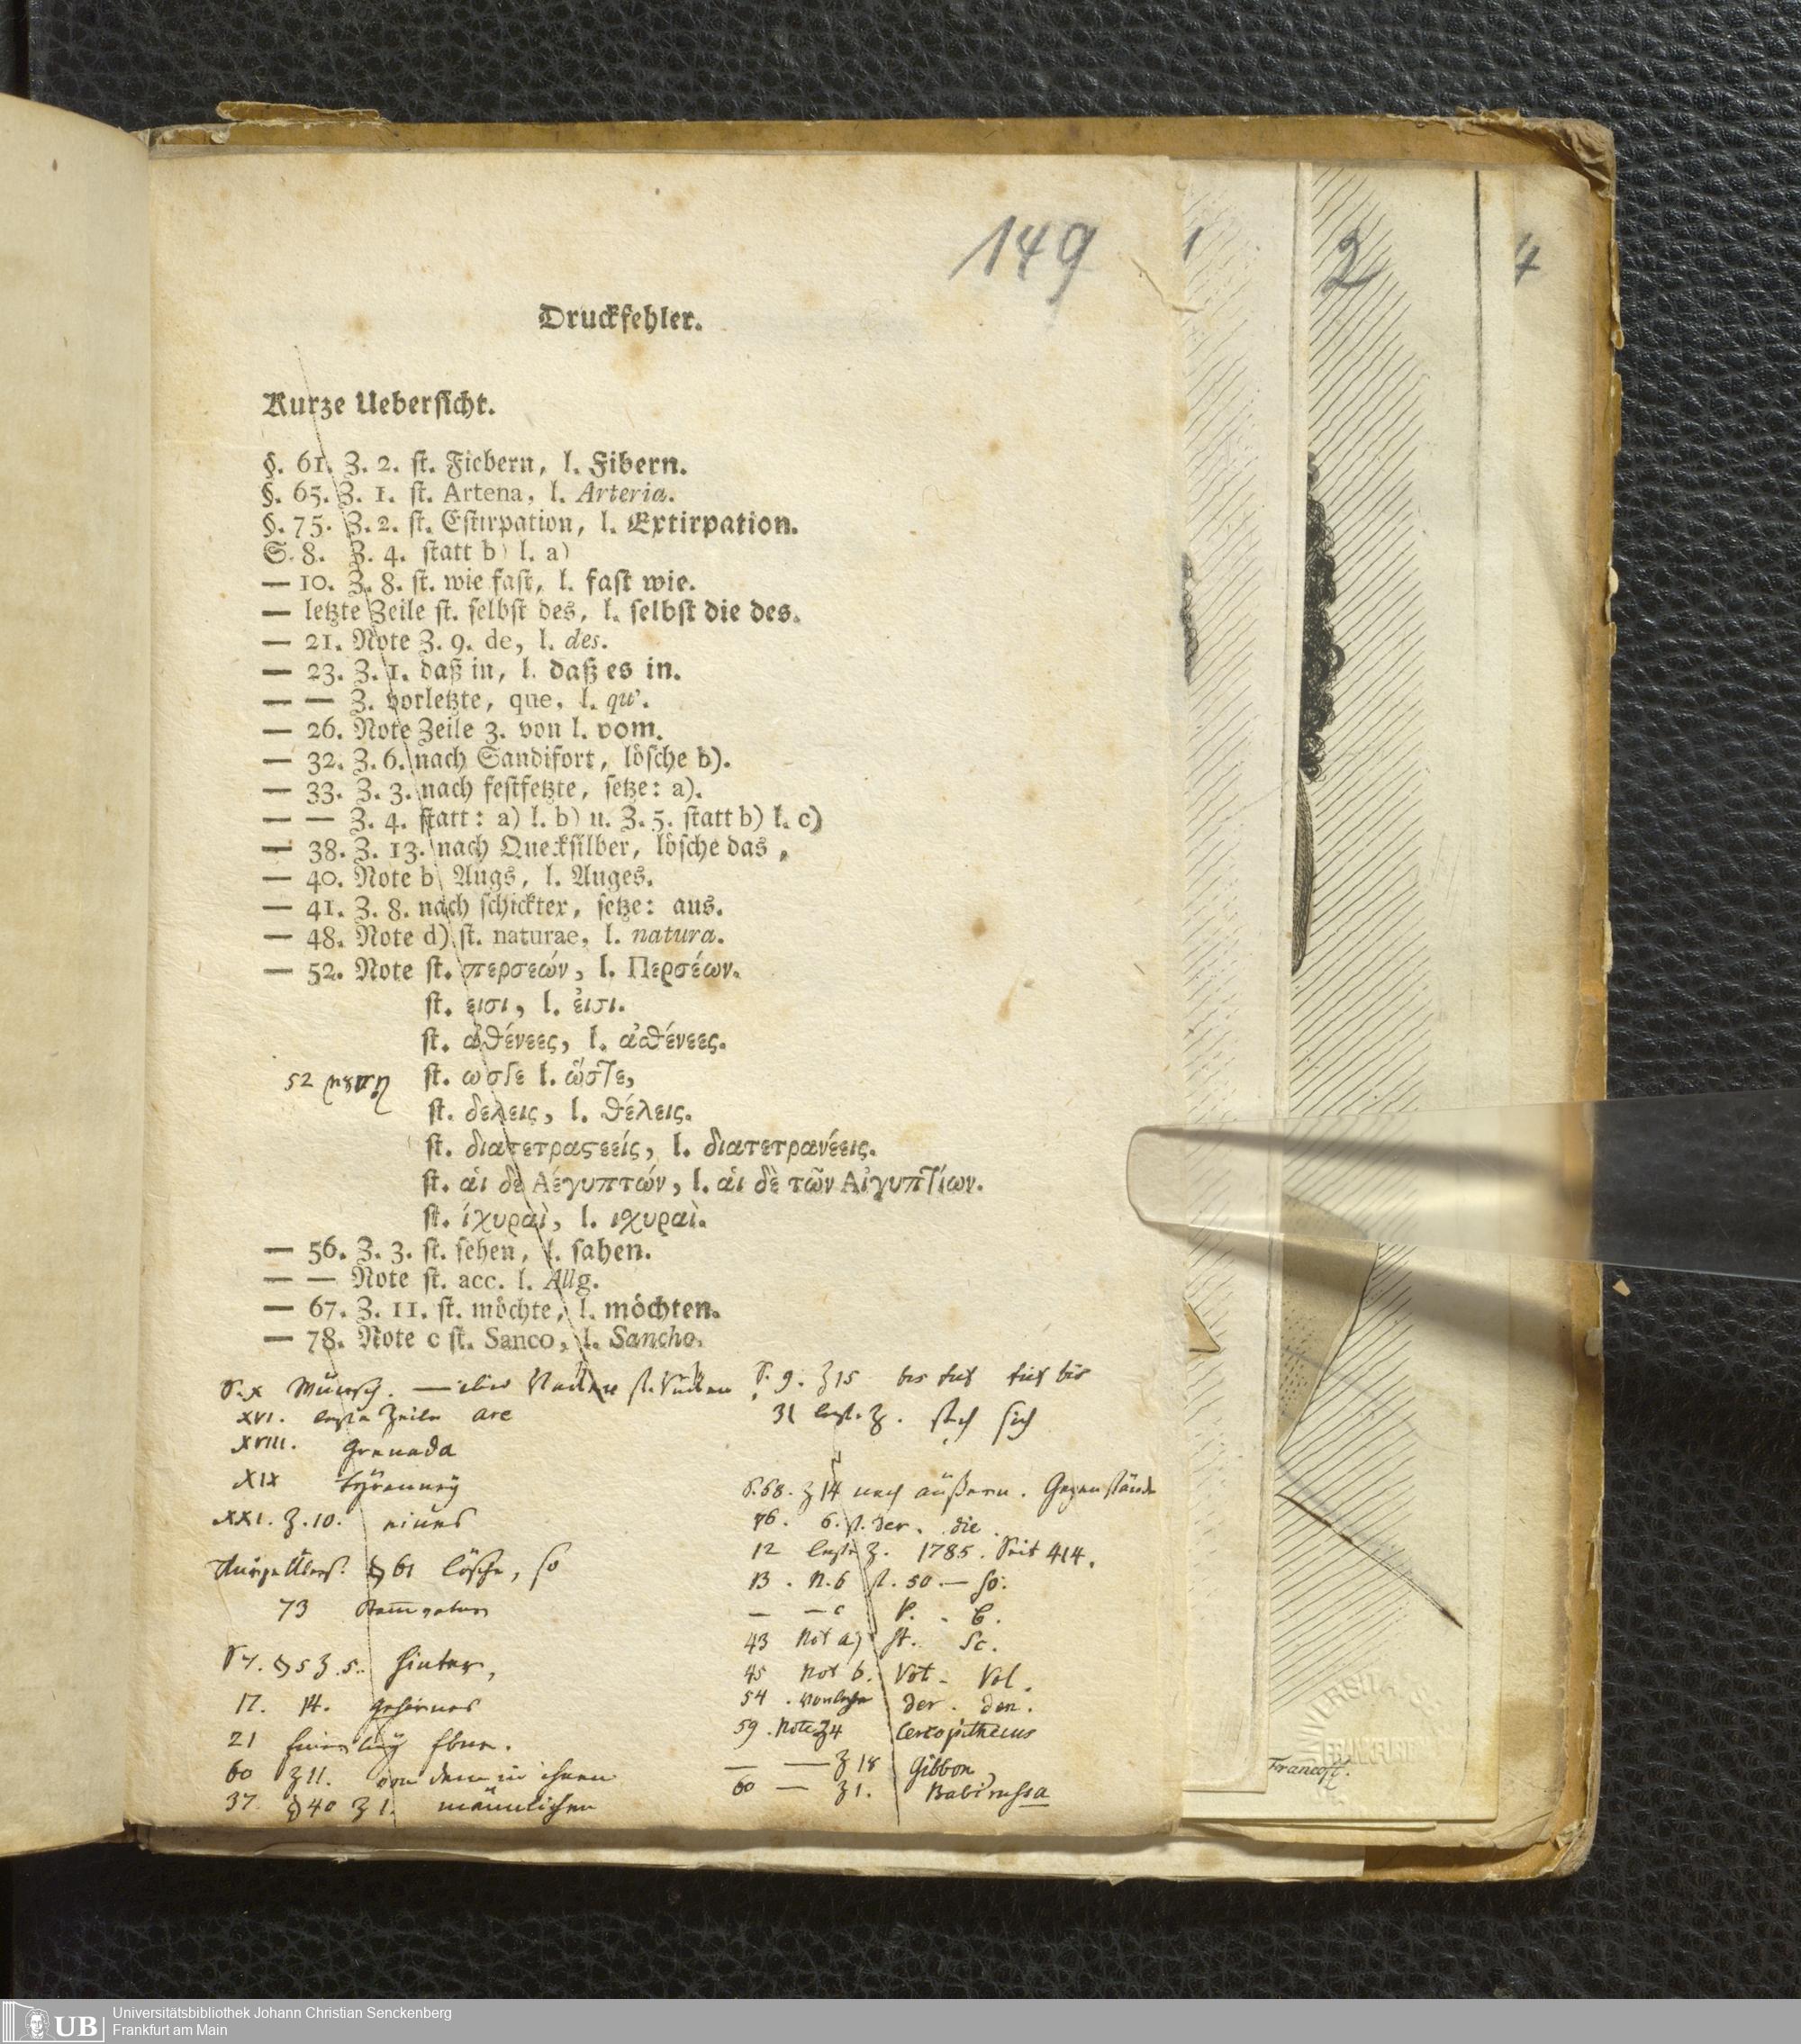 149
1
2
4
Druckfehler.
Kurze Ueberſicht.
§. 61. Z. 2. ſt. Fiebern, l. Fibern.
§. 65. Z. 1. ſt. Artena, l. Arteria.
§. 75. Z. 2. ſt. Eſtirpation, l. Extirpation.
S. 8. Z. 4. ſtatt b) l. a)
— 10. Z. 8. ſt. wie faſt, l. faſt wie.
— letzte Zeile ſt. ſelbſt des, l. ſelbſt die des.
— 21. Note Z. 9. de, l. des.
— 23. Z. 1. daß in, l. daß es in.
— — Z. vorletzte, que, l. qu'.
— 26. Note Zeile 3. von l. vom.
— 32. Z. 6. nach Sandifort, löſche b).
— 33. Z. 3. nach feſtfetzte, ſetze: a).
— — Z. 4. ſtatt: a) l. b) u. Z. 5. ſtatt b) l. c)
— 38. Z. 13. nach Queckſilber, löſche das ,
— 40. Note b) Augs, l. Auges.
— 41. Z. 8. nach ſchickter, ſetze: aus.
— 48. Note d) ſt. naturae, l. natura.
— 52. Note ſt. περσεών, l. Περσέων.
ſt. εισι, l. ἐισι.
ſt. αθένεες, l. ἀσθένεες.
52
ſt. ωστε l. ὥστε,
ſt. δελεις, l. θέλεις.
ſt. διατετραςεείς, l. διατετρανέεις.
ſt. ἁι δὲ Αέγυπτών, l. ἁι δὲ τῶν Αἰγυπτίων.
ſt. ίχυραὶ, l. ιχυραὶ.
— 56. Z. 3. ſt. ſehen, l. ſahen.
— — Note ſt. acc. l. Allg.
— 67. Z. 11. ſt. möchte, l. möchten.
— 78. Note c ſt. Sanco, l. Sancho.
S. x
XVI. letzte Zeile are
XVIII. Grenada
XIX Tyranney
XXI. Z. 10. eines
61 löſche, ſo
73
S 7. § 5 Z. 5. hinter,
17. 14. gehirnes
21
60 Z 11. von dem in ihnen
37. § 40 Z 1. männlichen
S. 9. Z 15 bis auf auf bis
31 letzte Z. ſich
S. 68. Z 14 nach äußern. Gegenſtände
76. 6. ſt. der. die.
12 letzte Z. 1785. Seit 414.
13. N. 6 ſt. 50. — ſo.
43 Not a) ſt. Sc.
45 Not b. Vot. Vol.
54. vorletzte der. den.
59. Note Z 4 Cercopithecus
— — Z 18 Gibbon
60 — Z 1. Babiruſsa
Francoft.
UNIVERSITÄTS
FRANKFURT
UB
Universitätsbibliothek Johann Christian Senckenberg
Frankfurt am Main